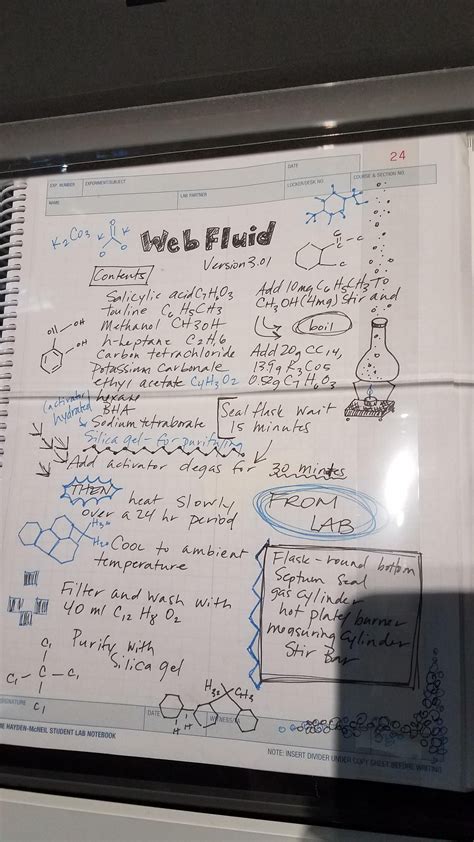 24
DATE
EXP. NUMBER
EXPERIMENT/SUBJECT
NAME
LAB PARTNER
LOCKER/DESK NO.
COURSE & SECTION NO.
K2CO3
K
K
O
Web Fluid
Version 3.01
Contents
Salicylic acid C7H6O3
touline C6H5CH3
Methanol CH3OH
h-heptane C2H6
Carbon tetrachloride
Potassium Carbonate
ethyl acetate C4H3O2
hexane
BHA
(activator)
hydrated
Sodium tetraborate
Silica gel - for purifying
OH
OH
Add 10mg C6H5CH3 To
CH3OH (4mg) Stir and
boil
Add 20g CC14,
139g K2CO3
0.52g C7H6O3
Seal flask wait
15 minutes
Add activator degas for 30 minutes
THEN
heat slowly
over a 24 hr period
H3C
Cool to ambient
temperature
FROM
LAB
Flask-round bottom
Septum Seal
gas cylinder
hot plate/burner
measuring cylinder
Stir Bar
Filter and Wash with
40 ml C12 H8 O2
Purify with
Silica gel
Cl
Cl
C
Cl
Cl
H3C
CH3
H
H
SIGNATURE
DATE
WITNESS/
HAYDEN-McNEIL STUDENT LAB NOTEBOOK
NOTE: INSERT DIVIDER UNDER COPY SHEET BEFORE WRITING